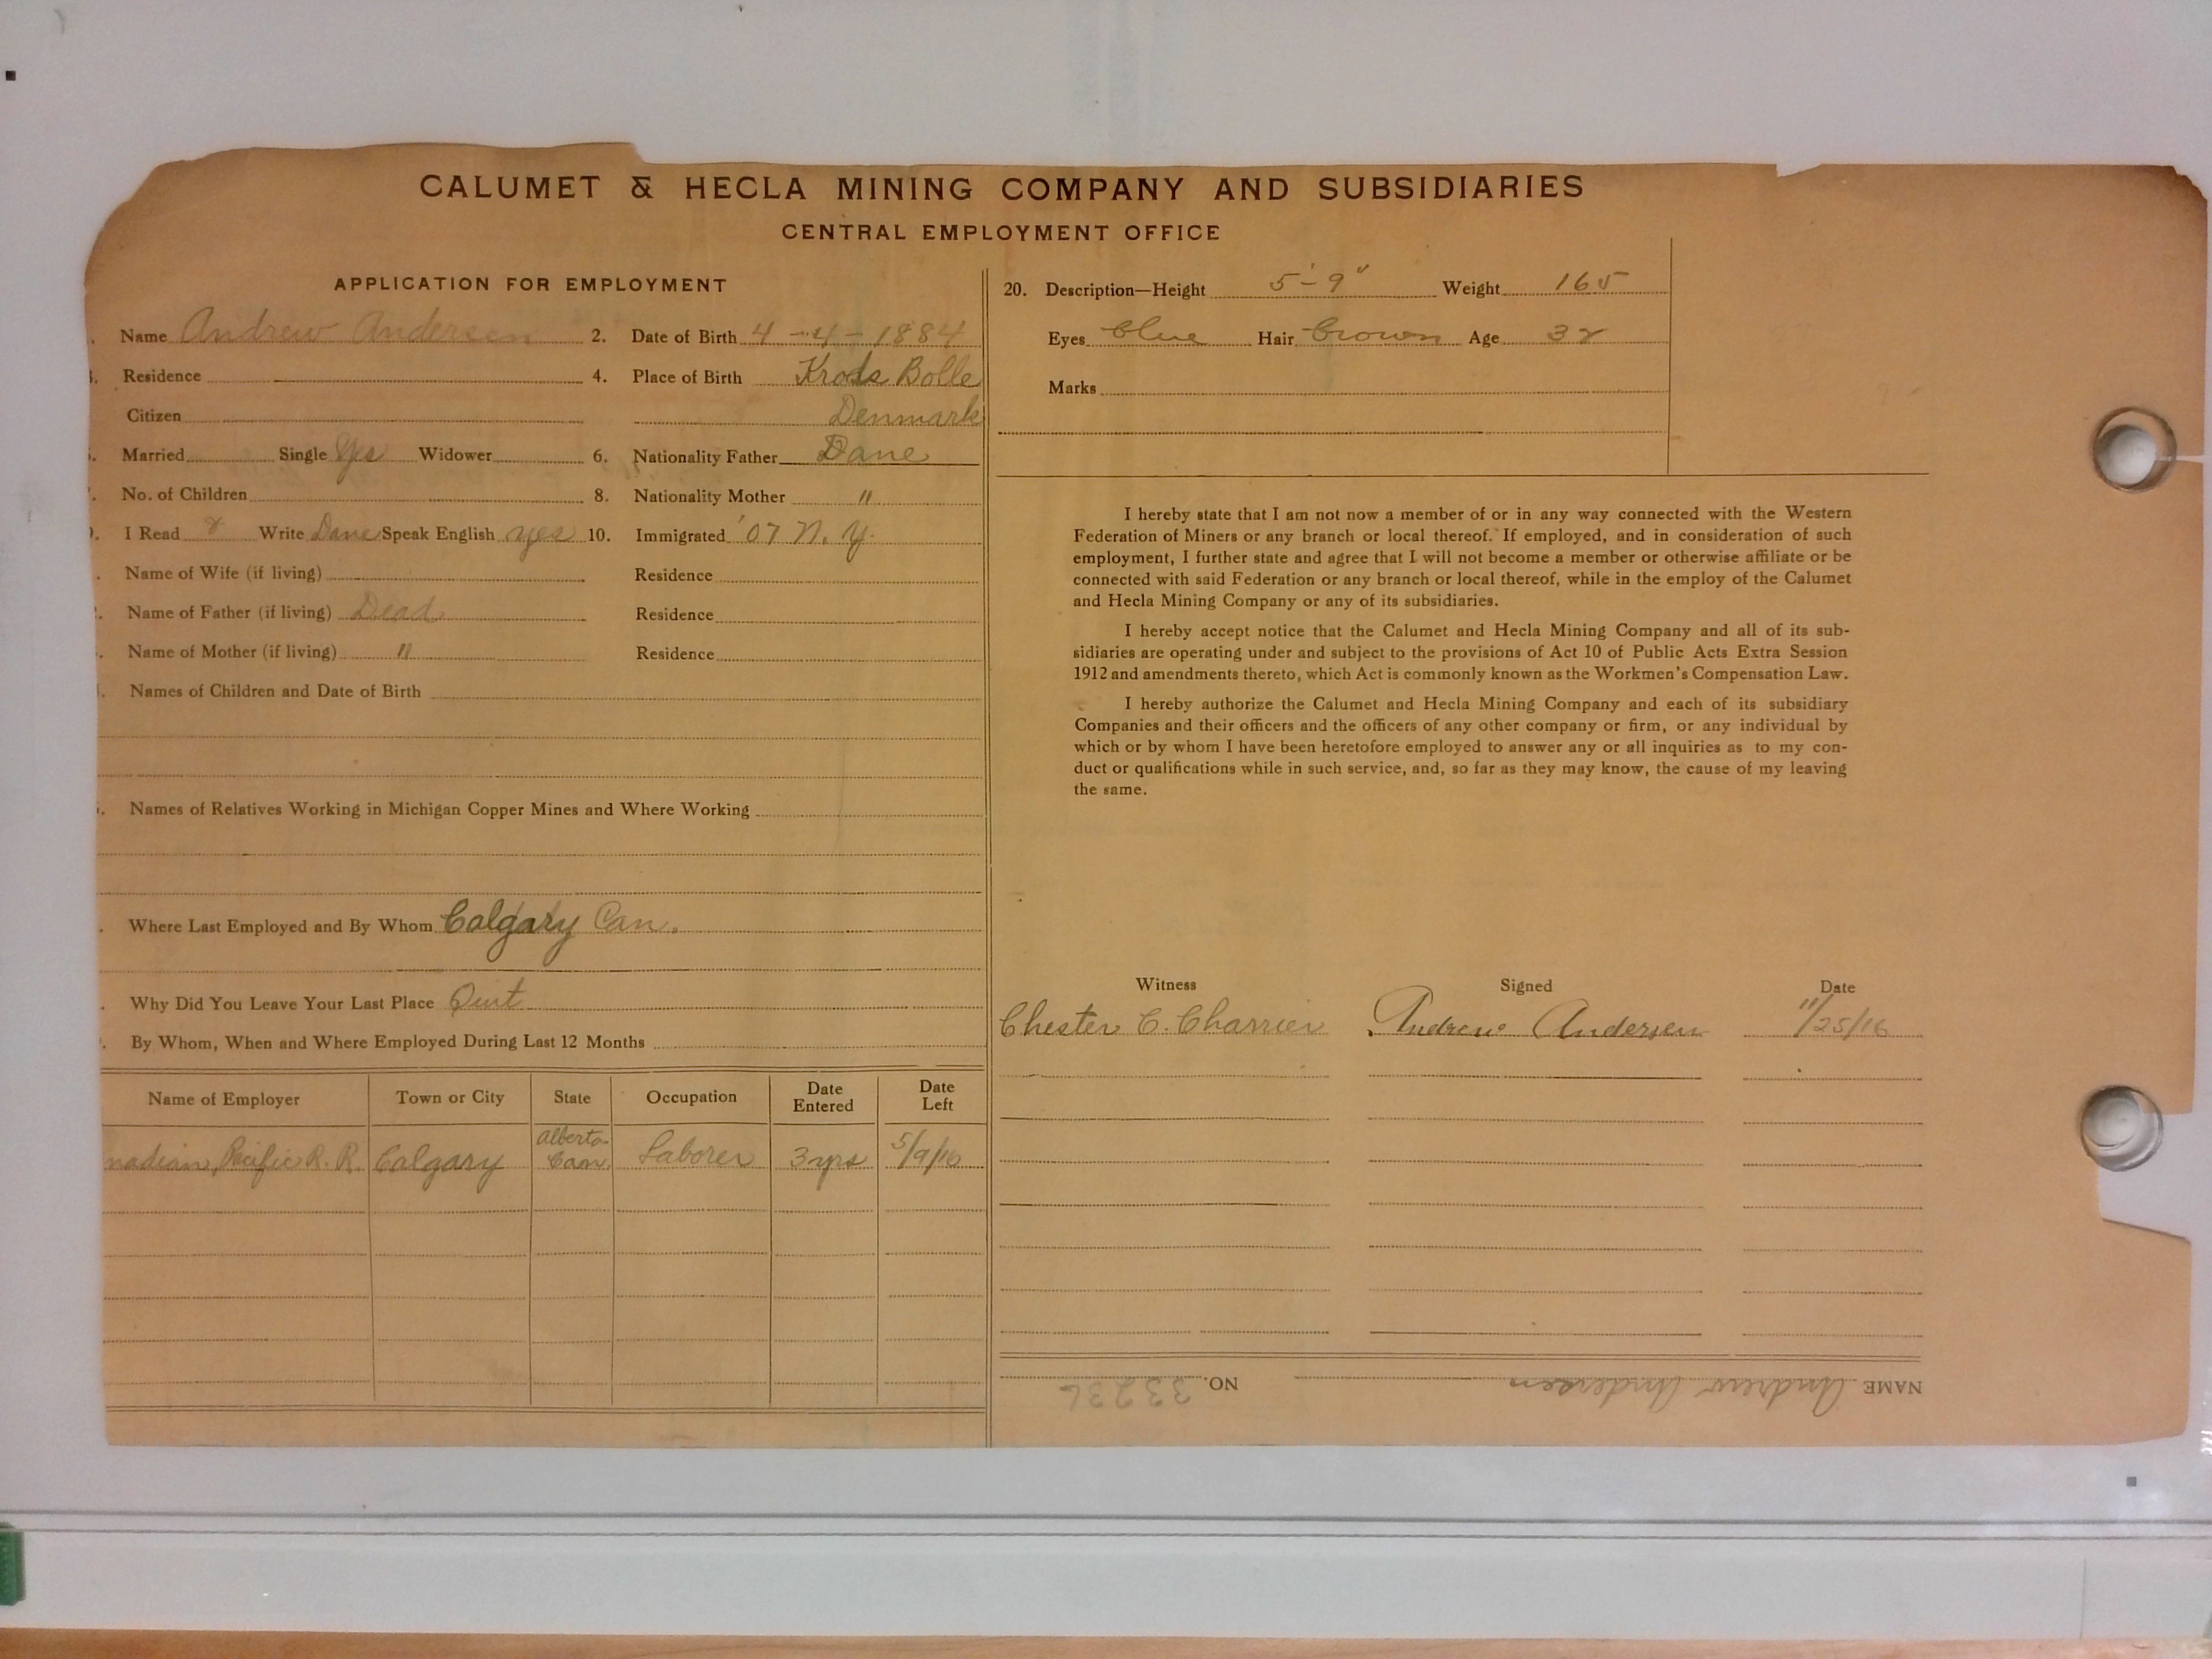 CALUMET & HECLA MINING COMPANY AND SUBSIDIARIES
CENTRAL EMPLOYMENT OFFICE
APPLICATION FOR EMPLOYMENT
Name Andrew Andersen 2. Date of Birth 4-4-1884
Residence 4. Place of Birth Krods Bolle
Citizen Denmark
Married Single Yes Widower 6. Nationality Father Dane
No. of Children 8. Nationality Mother "
I Read & Write Dane Speak English yes 10. Immigrated '07 N. Y.
Name of Wife (if living) Residence
Name of Father (if living) Dead Residence
Name of Mother (if living) " Residence
Names of Children and Date of Birth
Names of Relatives Working in Michigan Copper Mines and Where Working
Where Last Employed and By Whom Calgary Can.
Why Did You Leave Your Last Place Quit
By Whom, When and Where Employed During Last 12 Months
Name of Employer Town or City State Occupation Date Entered Date Left
nadian Pacific R. R. Calgary Alberta Can Laborer 3 yrs 5/9/16
20. Description—Height 5'-9" Weight 165
Eyes blue Hair brown Age 32
Marks
I hereby state that I am not now a member of or in any way connected with the Western
Federation of Miners or any branch or local thereof. If employed, and in consideration of such
employment, I further state and agree that I will not become a member or otherwise affiliate or be
connected with said Federation or any branch or local thereof, while in the employ of the Calumet
and Hecla Mining Company or any of its subsidiaries.
I hereby accept notice that the Calumet and Hecla Mining Company and all of its sub-
sidiaries are operating under and subject to the provisions of Act 10 of Public Acts Extra Session
1912 and amendments thereto, which Act is commonly known as the Workmen's Compensation Law.
I hereby authorize the Calumet and Hecla Mining Company and each of its subsidiary
Companies and their officers and the officers of any other company or firm, or any individual by
which or by whom I have been heretofore employed to answer any or all inquiries as to my con-
duct or qualifications while in such service, and, so far as they may know, the cause of my leaving
the same.
Witness Signed Date
Chester C. Charrier Andrew Andersen 11/25/16
NAME Andrew Andersen NO. 33236